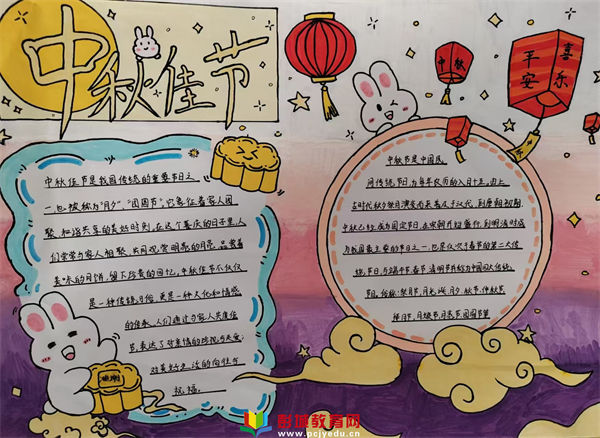 中秋佳节
中秋
平安
喜乐
中秋佳节是我国传统的重要节日之
一,也被称为"月夕""团圆节",它象征着家人团
聚、和谐共享的美好时刻,在这个喜庆的日子里,人
们常常与家人相聚,共同观赏明亮的月亮,品尝着
美味的月饼,留下珍贵的回忆,中秋佳节不仅仅
是一种传统习俗,更是一种文化和情感
的传承,人们通过与家人共度佳
节,表达了对亲情的珍视,与关爱,
对美好生活的向往与
祝福。
中秋节是中国民
间传统节日,为每年农历的八月十五,由上
古时代秋夕祭月演变而来,普及于汉代,到唐朝初期,
中秋已经成为固定节日,在宋朝开始盛行,到明清时成
与我国最主要的节日之一,也是仅次于春节的第二大传
统节日,与端午节、春节、清明节并称为中国四大传统
节日,俗称:祭月节、月光诞、月夕、秋节、仲秋节
拜月节、月娘节、月亮节、团圆节等
彭城教育网
www.pcjyedu.cn